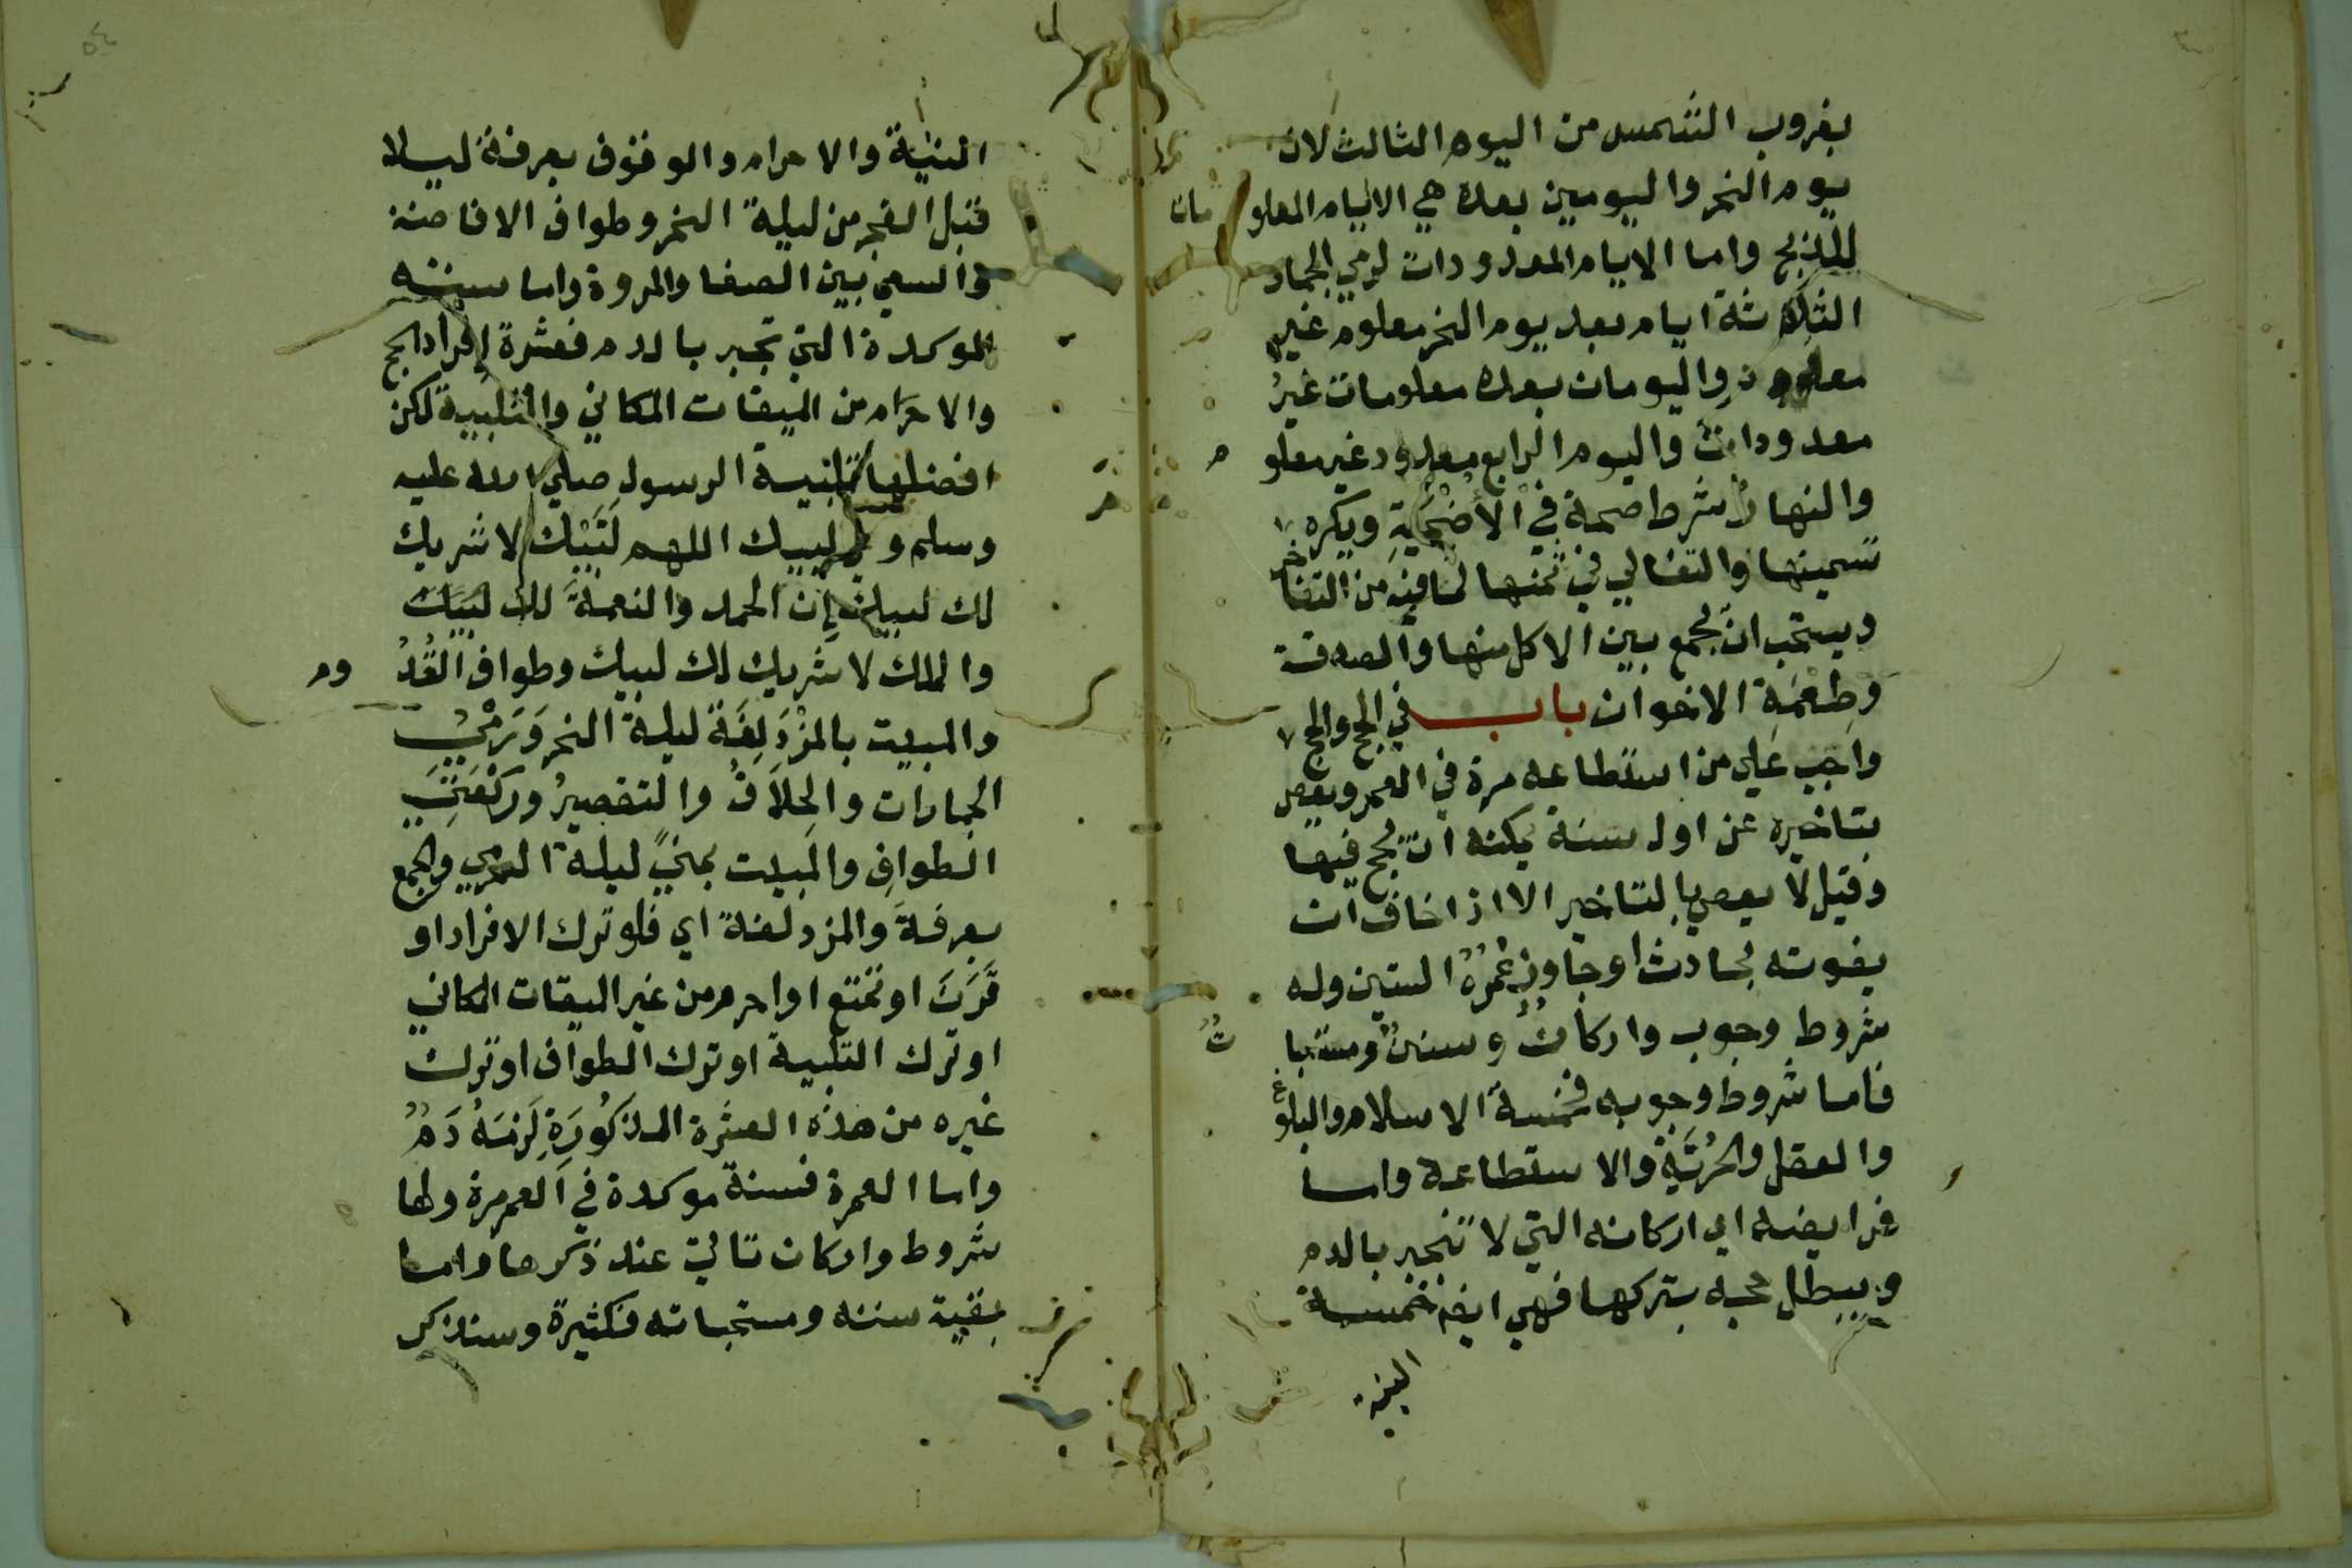 بغروب الشمس من اليوم الثالث لان
يوم النحر واليومين بعده هي الايام المعلومات
للذبح واما الايام المعدودات لرمي الجمار
الثلاثة ايام بعد يوم النحر معلوم غير
معدود واليومان بعده معلومات غيرُ
معدودات واليوم الرابع معدود غير معلوم
والنهارُ شرط صحة في الأضْحيةِ ويكره
تسمينها والتغالي في ثمنها لما فيه من التفاخر
ويستحب ان يجمع بين الاكل منها والصدقة
وطِعْمَةِ الاخوان باب في الحج والحج
واجب علي من استطاعه مرة في العمر ويعص
بتاخيره عن اول سنة يمكنه ان يحج فيها
وقيل لا يعصي بالتاخير الا اذا خاف ان
يفوته بحادث او جاوز عُمُرُهُ الستين وله
شروط وجوب واركانٌ وسننٌ ومستحباتٌ
فاما شروط وجوبه فخمسة الاسلام والبلوغ
والعقل والحُرِّيَّةُ والاستطاعة واما
فرايضه اي اركانه التي لا تنجبر بالدم
ويبطل حجه بتركها فهي ايضا خمسة
النية
النيّة والاحرام والوقوف بعرفة ليلا
قبل الفجر من ليلة النحر وطواف الافاضة
والسعي بين الصفا والمروة واما سننه
الموكدة التي تجبر بالدم فعشرةً إفراد الحج
والاحرَام من الميقات المكاني والتلبية لكن
افضلها تلبية الرسول صلي الله عليه
وسلم وهي لبيك اللهم لَبَّيْك لا شريك
لك لبيك إِن الحمد والنعمةَ لك لبيك
والملك لا شريك لك لبيك وطواف القُدُوم
والمبيت بالمُزْدَلِفَةَ ليلة النحر وَرَمْيُ
الجمارات والحِلَاقُ والتقصيرُ وركْعَتَيِ
الطوافِ والمبيت بمنيً ليلة الرمي والجمع
بعرفةَ والمزدلفة اي فلو ترك الافراد او
قَرَنَ او تمتع او احرم من غير الميقات المكاني
او ترك التلبية او ترك الطواف او ترك
غيره من هذه العشرة المذكُورَةِ لَزِمَهُ دَمٌ
واما العمرة فسنة موكدة في العمر مرة ولها
شروط واركان تاتي عند ذكرها واما
بقية سننه ومستحباته فكثيرة وسنذكر